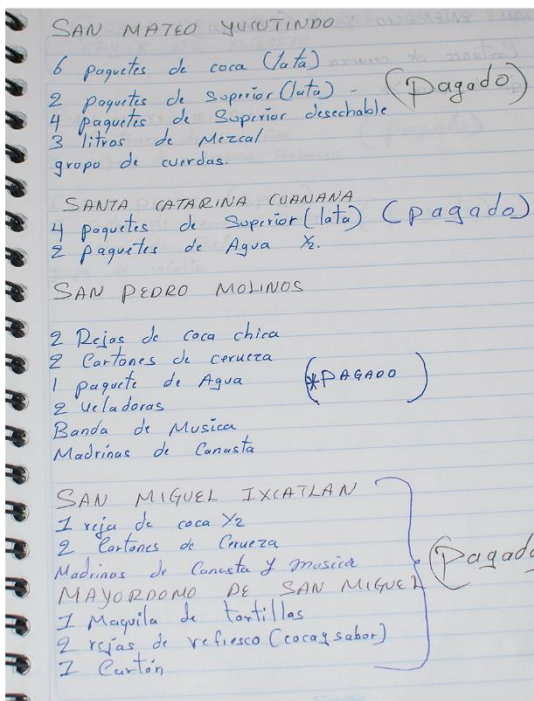 SAN MATEO YUCUTINDO
6 paquetes de coca (lata)
2 paquetes de Superior (lata) - (Pagado)
4 paquetes de Superior desechable
3 litros de Mezcal
grupo de cuerdas.
SANTA CATARINA CUANANA
4 paquetes de Superior (lata) (pagado)
2 paquetes de Agua ½.
SAN PEDRO MOLINOS
2 Rejas de coca chica
2 Cartones de cerveza
1 paquete de Agua (*PAGADO)
2 veladoras
Banda de Musica
Madrinas de Canasta
SAN MIGUEL IXCATLAN
1 reja de coca ½
2 Cartones de Cerveza
Madrinas de Canasta y musica (Pagado
MAYORDOMO DE SAN MIGUEL
1 Maquila de tortillas
2 rejas de refresco (coca y sabor)
1 Cartón